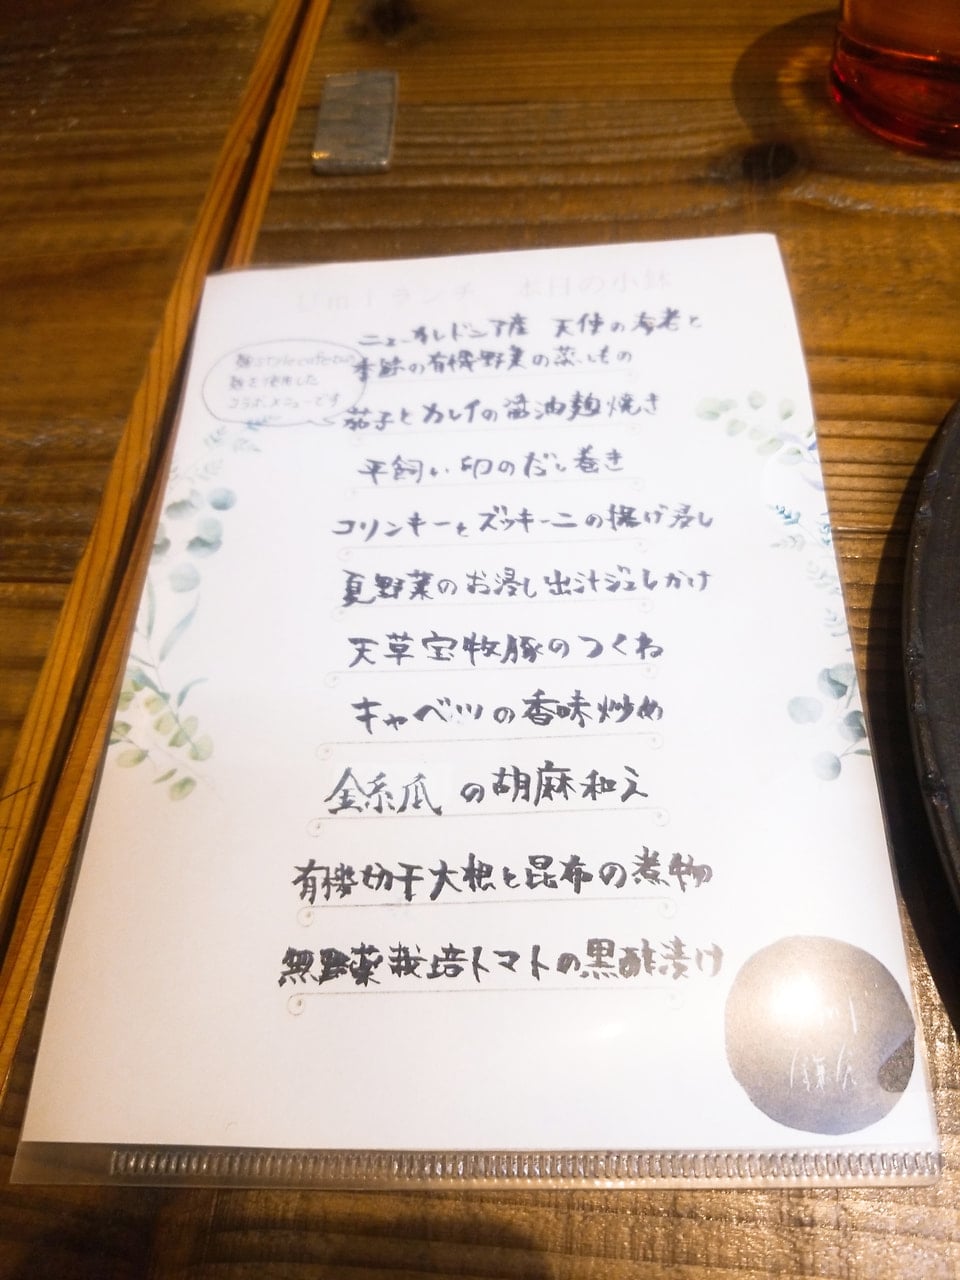 Umiランチ 本日の小鉢
ニューカレドニア産 天使の海老と
季節の有機野菜の蒸しもの
麹style cafeさんの
麹を使用した
コラボメニューです
茄子とカレイの醤油麹焼き
平飼い卵のだし巻き
コリンキーとズッキーニの揚げ浸し
夏野菜のお浸し出汁ジュレかけ
天草宝牧豚のつくね
キャベツの香味炒め
金糸瓜の胡麻和え
有機切干大根と昆布の煮物
無農薬栽培トマトの黒酢漬け